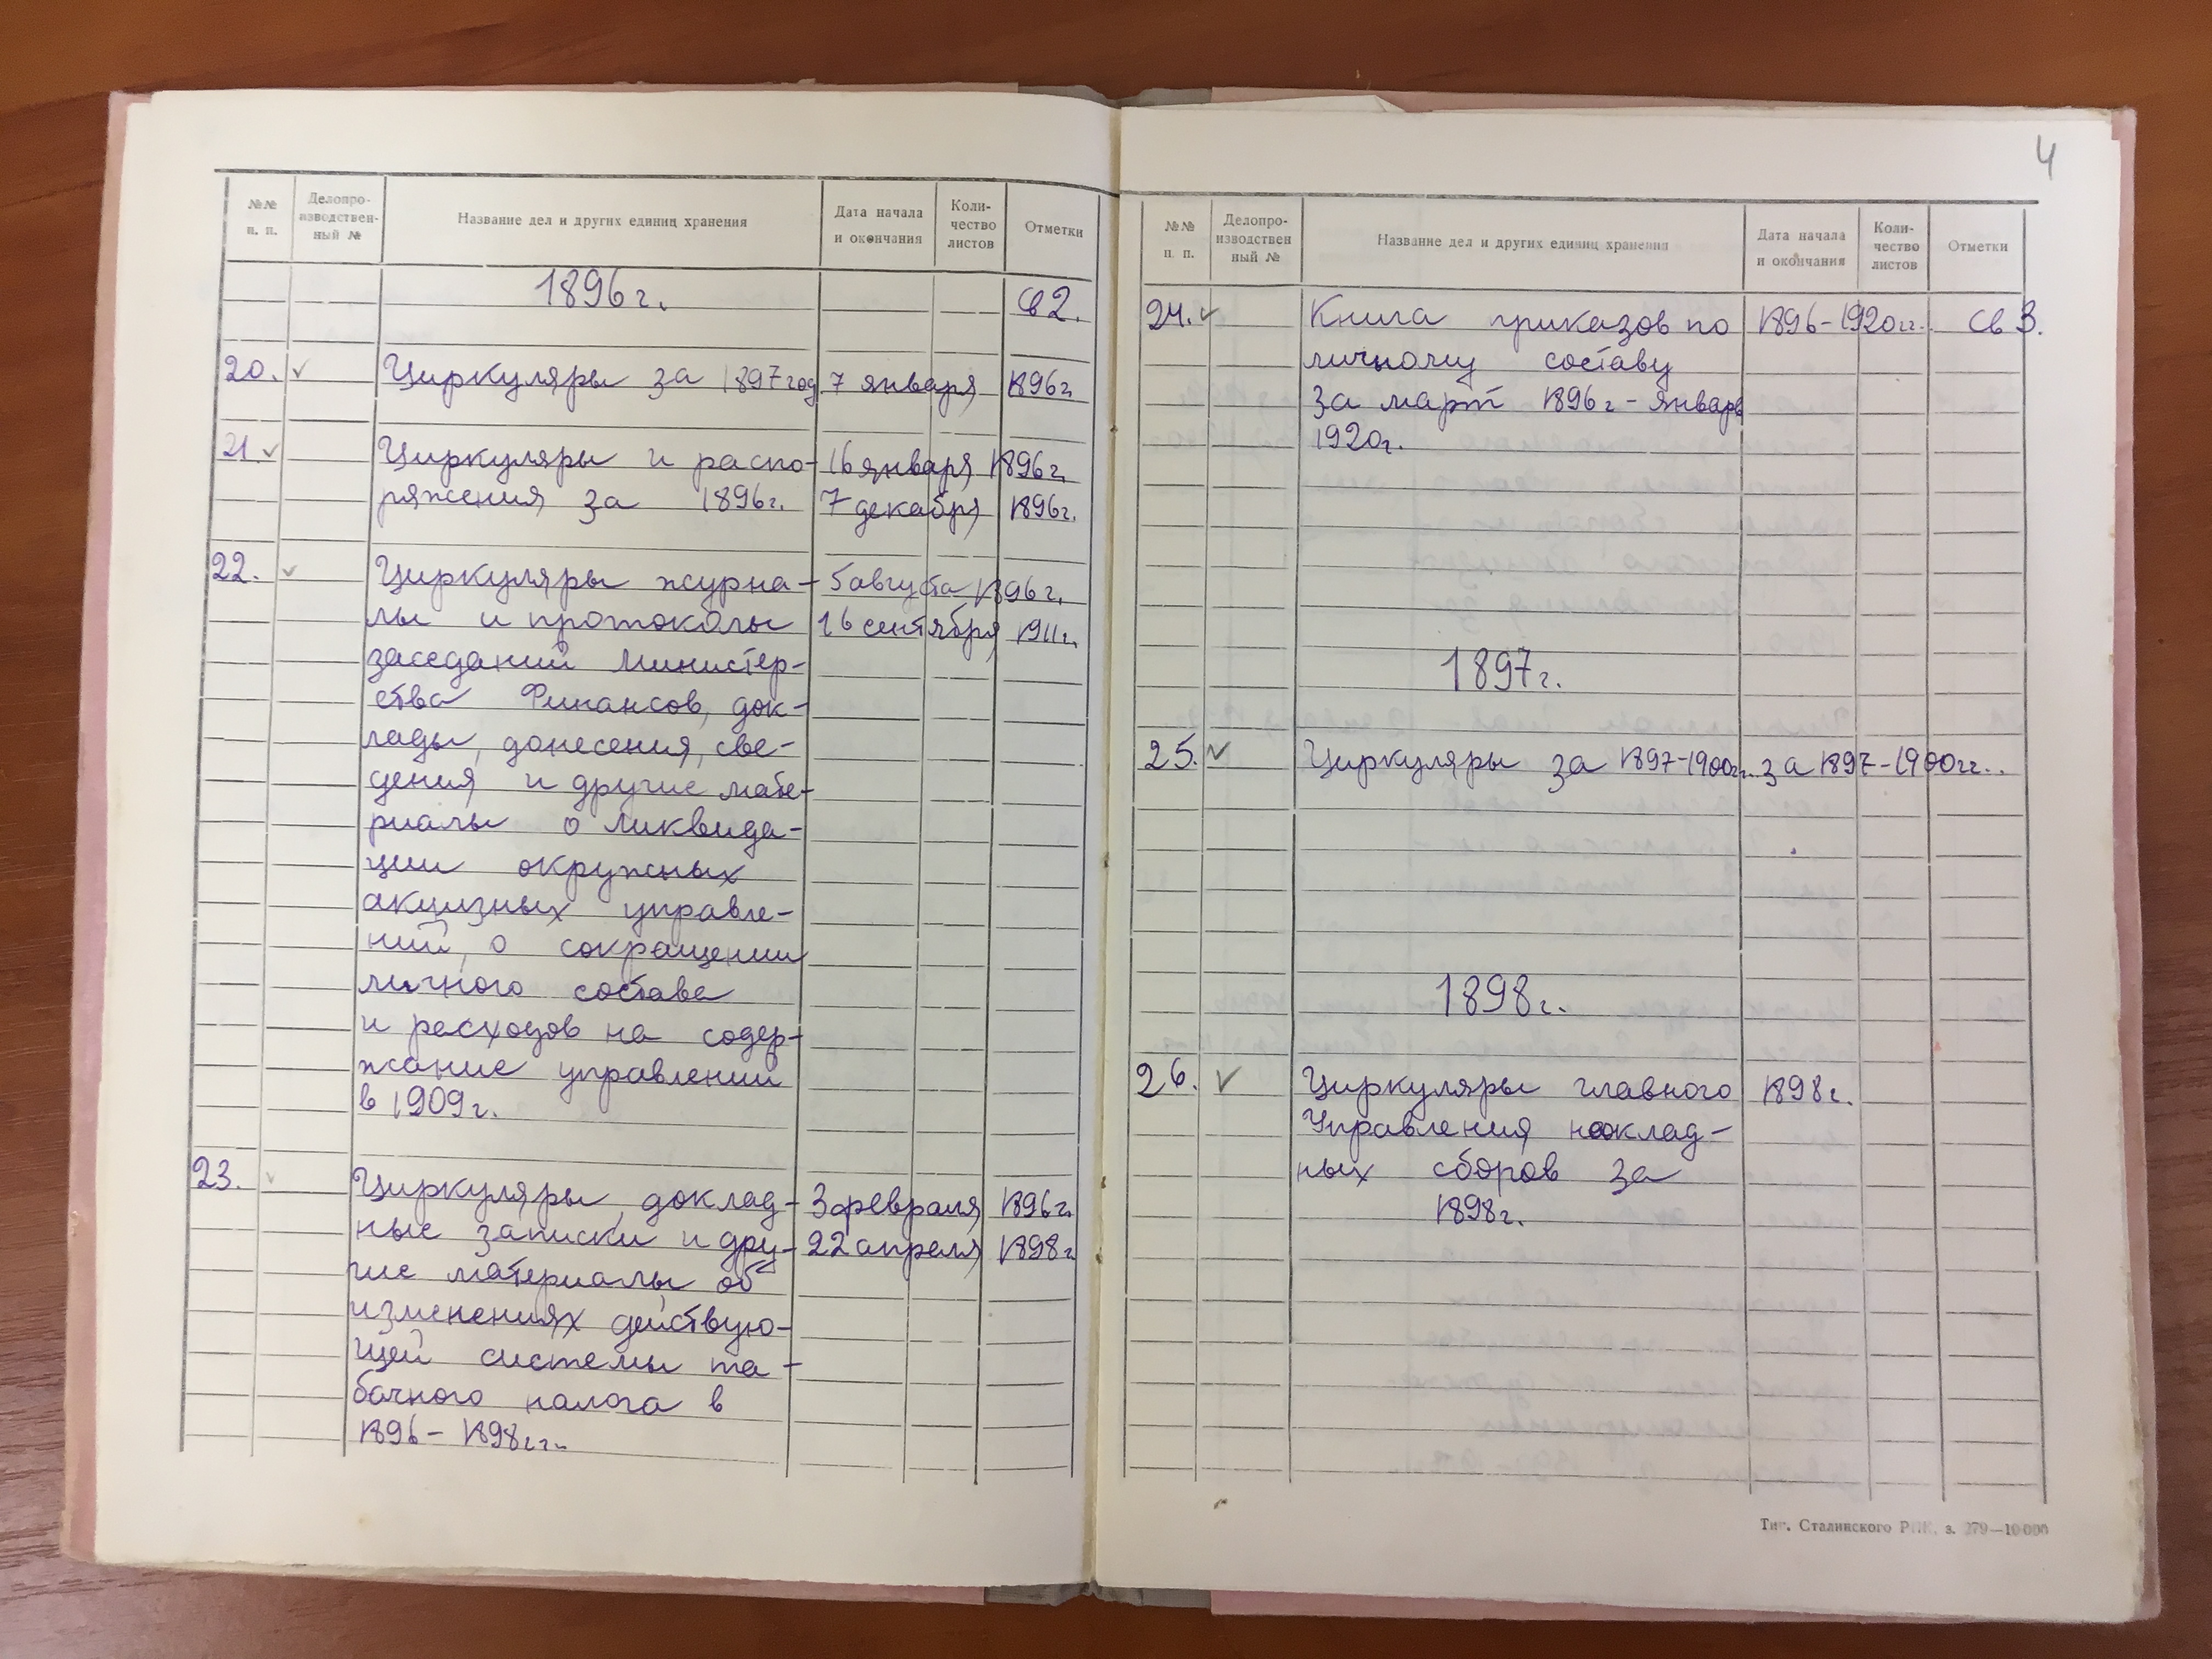 №№ п. п. Делопроизводственный № Название дел и других единиц хранения Дата начала и окончания Количество листов Отметки
1896г. св2.
20. ✓ Циркуляры за 1897год 7 января 1896г.
21. ✓ Циркуляры и распо- 16 января 1896г.
ряжения за 1896г. 7 декабря 1896г.
22. ✓ Циркуляры журна- 5 августа 1896г.
лы и протоколы 16 сентября 1911г.
заседаний Министер-
ства Финансов, док-
лады, донесения, све-
дения и другие мате-
риалы о ликвида-
ции окружных
акцизных управле-
ний, о сокращении
личного состава
и расходов на содер-
жание управлений
в 1909г.
23. ✓ Циркуляры, доклад- 3 февраля 1896г.
ные записки и дру- 22 апреля 1898г
гие материалы об
изменениях действую-
щей системы та-
бачного налога в
1896-1898гг.
4
№№ п. п. Делопроизводствен ный № Название дел и других единиц хранения Дата начала и окончания Количество листов Отметки
24. ✓ Книга приказов по 1896-1920гг. св 3.
личному составу
за март 1896г-январь
1920г.
1897г.
25. ✓ Циркуляры за 1897-1900гг. за 1897-1900гг.
1898г.
26. ✓ Циркуляры главного 1898г.
Управления неоклад-
ных сборов за
1898г.
Тип. Сталинского РПК, з. 279—10000